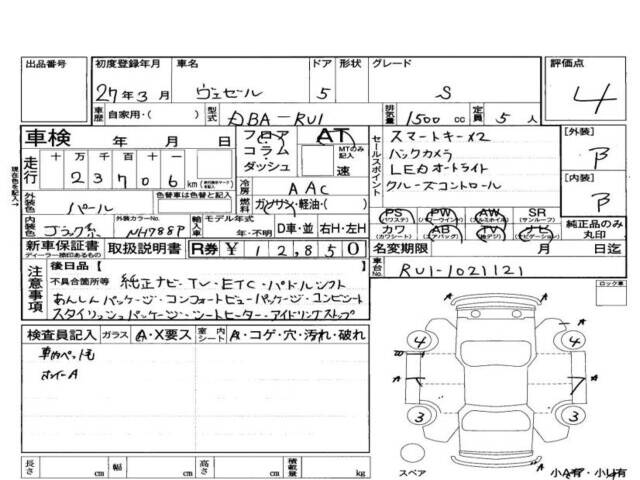 出品番号 初度登録年月 車名 ドア 形状 グレード 評価点
27年3月 ヴェゼル 5 S 4
車歴 自家用・( ) 型式 DBA-RU1 排気量 1500 cc 定員 5 人
車検 年 月 日 フロア コラム ダッシュ AT MTのみ記入 速
セールスポイント スマートキーX2
バックカメラ
LEDオートライト
クルーズコントロール
[外装] B
[内装] B
現在色を記入→
走行 十万 万 千 百 十 一
2 3 7 0 6 km
冷房 AAC
外装色 パール 色替車は色替と記入 燃料 ガソリン・軽油・( )
内装色 ブラック系 外装カラーNo. NH788P 輸入車 モデル年式 年・不明 D車・並 右H・左H
PS (パワステ) PW (パワーウインド) AW (アルミホイル) SR (サンルーフ)
カワ (カワシート) AB (エアバッグ) TV (地デジ) ナビ (ナビゲーション) 純正品のみ丸印
新車保証書 ディーラー捺印あるもの 取扱説明書 R券 ¥12,850
名変期限 月 日迄
車台No. RU1-1021121
注意事項 後日品【
不具合箇所等 純正ナビ・TV・ETC・パドルシフト
あんしんパッケージ・コンフォートビューパッケージ・コンビシート
スタイリッシュパッケージ・シートヒーター・アイドリングストップ
ロック車
検査員記入 ガラス A・X要ス 室内シート A・コゲ・穴・汚れ・破れ
車内ペット毛
A
A
4 4
A A
3 3
A
スペア 小A有・小U有
長さ cm 幅 cm 高さ cm 積載量 kg